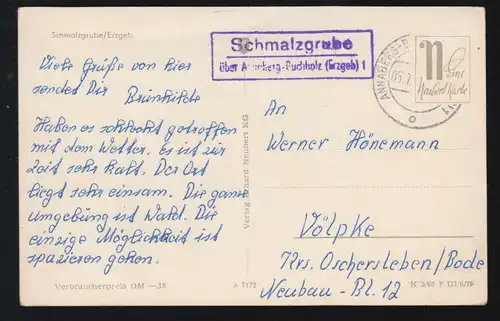 Schmalzgrube/Erzgeb.
Viele Grüße von hier
sendet Dir
Brunhilde
Haben es schlecht getroffen
mit dem Wetter. Es ist zur
Zeit sehr kalt. Der Ort
liegt sehr einsam. Die ganze
umgebung ist Wald. Die
einzige Möglichkeit ist
spazieren gehen.
Verbraucherpreis DM —,15
Schmalzgrube
über Annaberg-Buchholz (Erzgeb) 1
ANNABERG-B
Verlag Erhard Neubert KG
A 7172
N
Eine
Neubert Karte
An
Werner Hönemann
Völpke
Krs. Oschersleben/Bode
Neubau-Bl. 12